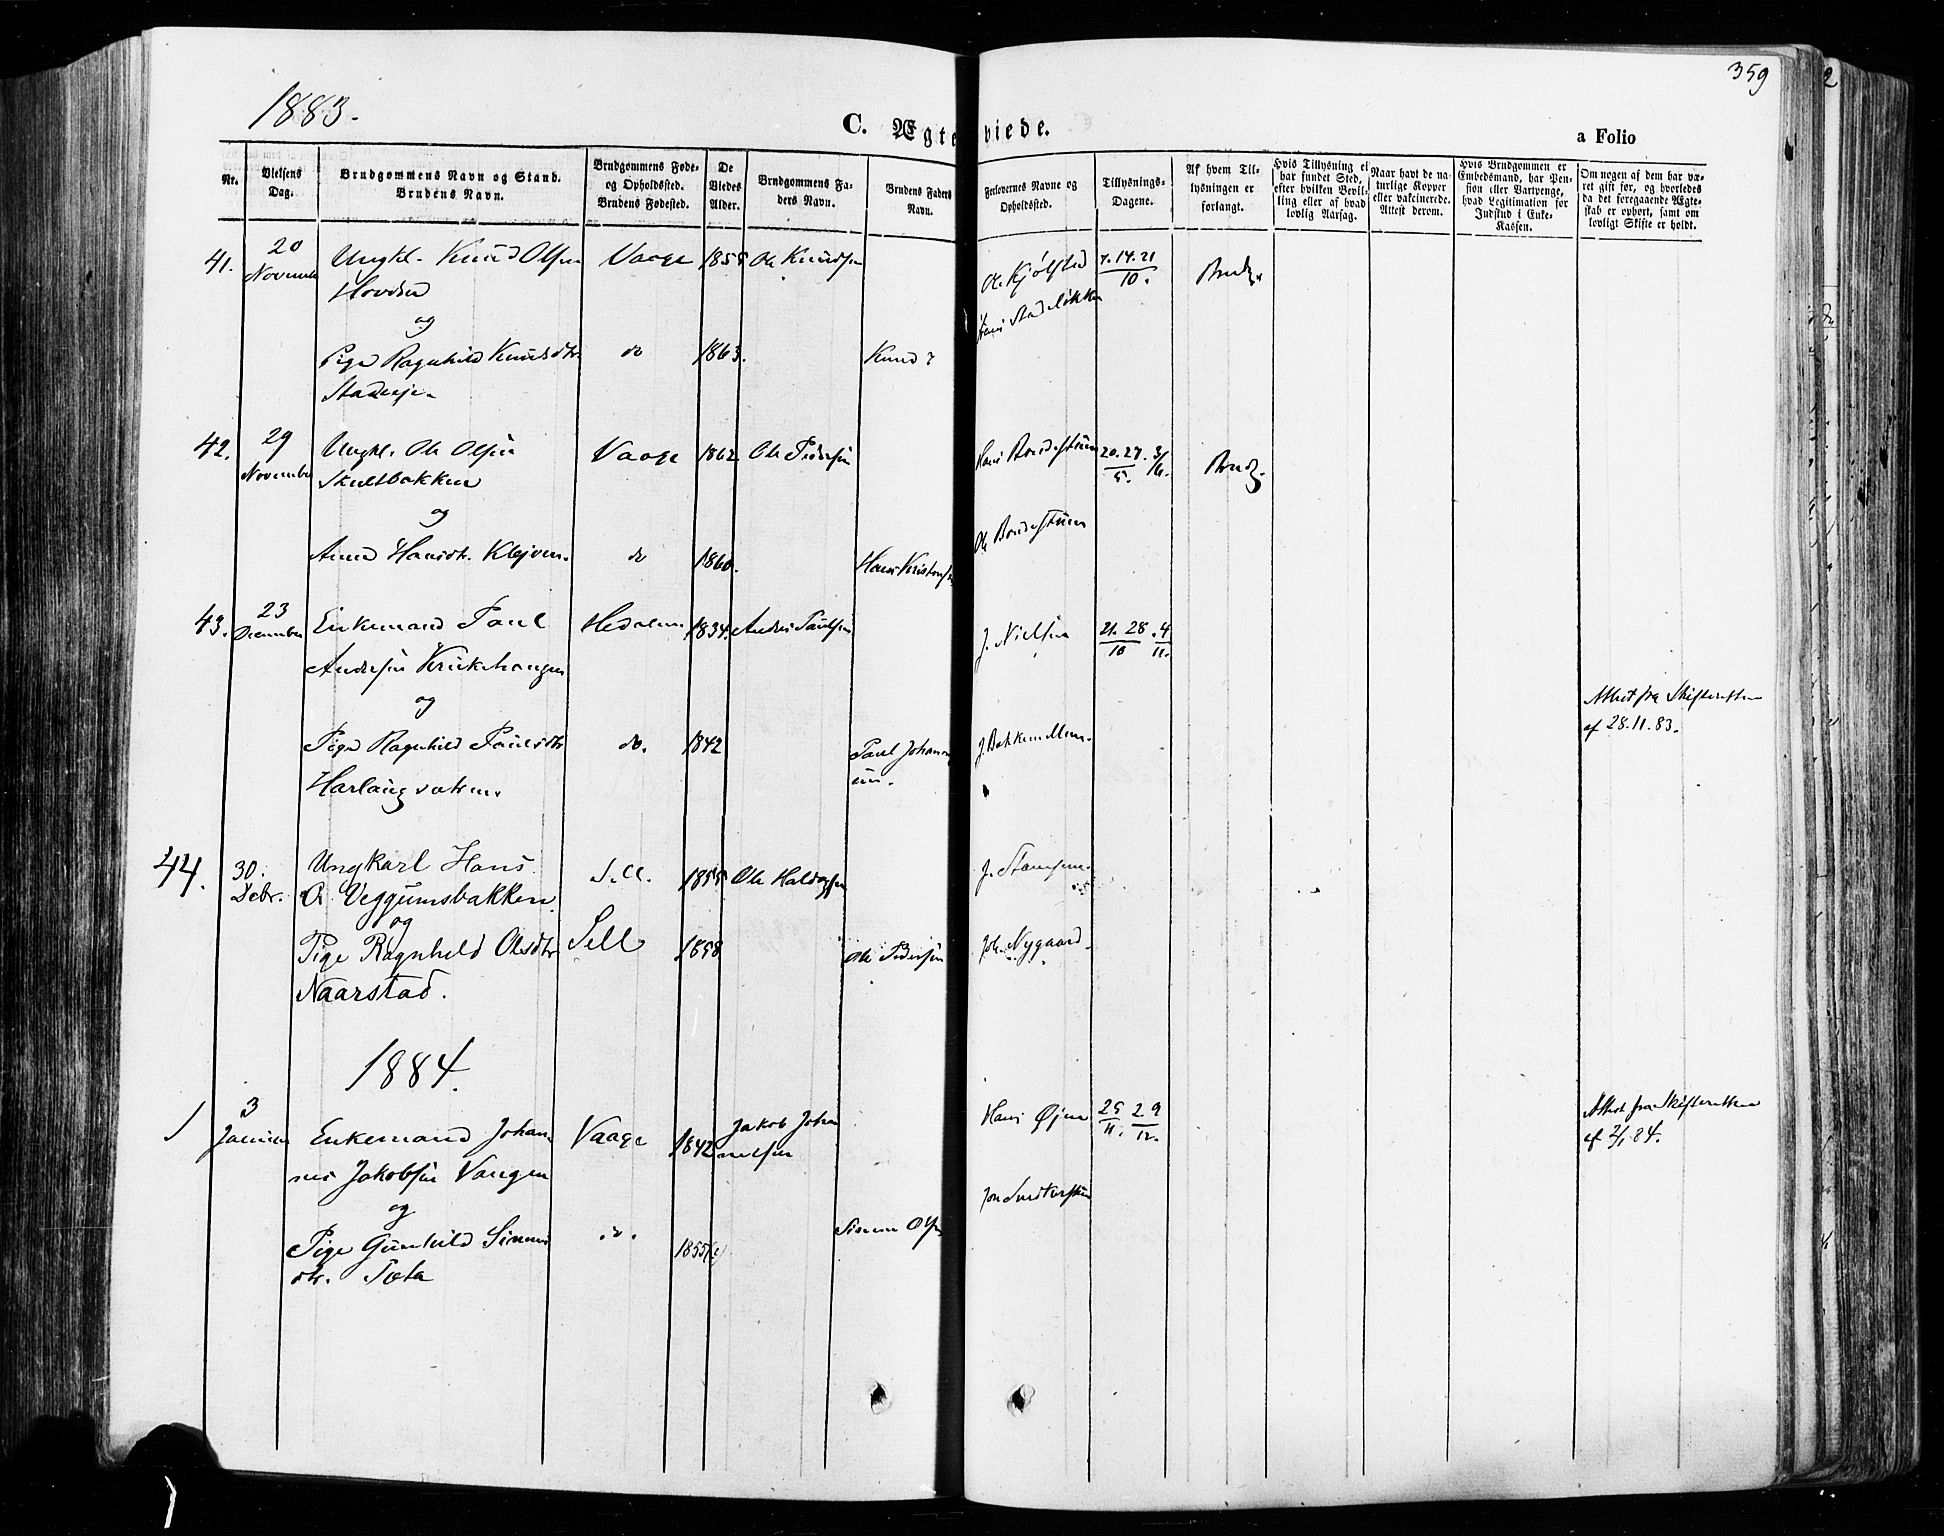 359
2
1883.
C. Ægteviede.
a Folio
Nr.
Vielsens Dag.
Brudgommens Navn og Stand. Brudens Navn.
Brudgommens Føde- og Opholdssted. Brudens Fødested.
De Viedes Alder.
Brudgommens Faders Navn.
Brudens Faders Navn.
Forlovernes Navne og Opholdssted.
Tillysnings-Dagene.
Af hvem Tillysningen er forlangt.
Hvis Tillysning ei har fundet Sted, efter hvilken Bevilling eller af hvad lovlig Aarsag.
Naar havt de naturlige Kopper eller vakcinerede. Attest derom.
Hvis Brudgommen er Embedsmand, har Pension eller Vartpenge, hvad Legitimation for Indskud i Enke-Kassen.
Om nogen af dem har været gift før, og hvorledes da det foregaaende Ægteskab er ophørt, samt om lovligt Skifte er holdt.
41. 20 Ungkl. Knud Olsen Vaage 1855 Ole Knudsen Ole Kjølstad 7. 14. 21 Brudg.
November Hovden 10.
og Hans Stadeløkken
Pige Ragnhild Knudsdtr. do 1863. Knud ?
Stadeeje.
42. 29 Ungkl. Ole Olsen Vaage 1862 Ole Pedersen Hans 20. 27. 3/6. Brudg.
November 5.
og Ole
Anne Hansdt. Klejven. do 1860. Hans Kristensen
43. 23 Enkemand Paul Hedalen 1834. Anders Paulsen J. Nielsen 21. 28. 4
December Andersen Krukehaugen 10 11.
og Attest fra Skifteretten
af 28.11.83.
Pige Ragnhild Paulsdtr do. 1842 Paul Johannes- J. Bakkemellum.
Harlaugsaken. sen.
44. 30. Ungkarl Hans Sell. 1855 Ole Haldogsen J. Stamsen
Debr. O. Veggumsbakken
og
Pige Ragnhild Olesdtr Sell 1858 Ole Pedersen Joh. Nygaard.
Naarstad.
1884.
1 3 Enkemand Johan- Vaage 1842 Jakob Johan- Hans Øjen 25 29 Attest fra Skifteretten
Januar nes Jakobsen Vangen nessen 11. 12. af 2/1 84.
og
Pige Gunhild Simens- do. 1855 Simen Olsen
dtr. Tota